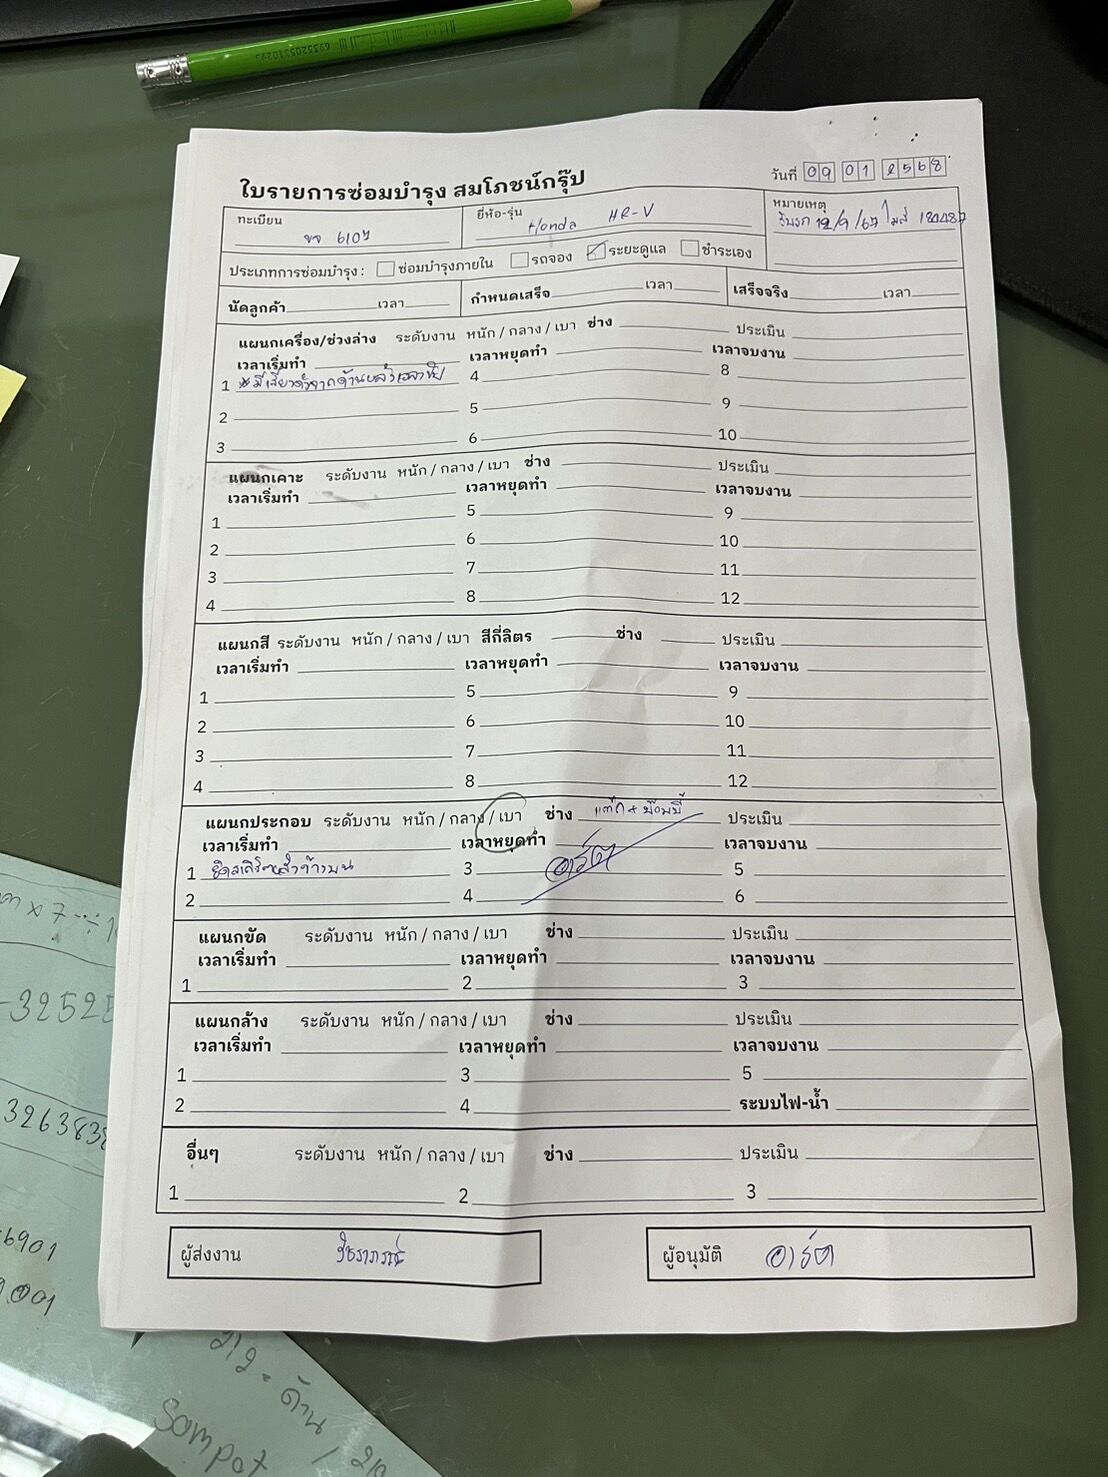 ใบรายการซ่อมบำรุง สมโภชน์กรุ๊ป
วันที่ 09 01 2568
ทะเบียน ขจ 6107
ยี่ห้อ-รุ่น Honda HR-V
หมายเหตุ
รับรถ 12/9/67 ไมล์ 184487
ประเภทการซ่อมบำรุง : ซ่อมบำรุงภายใน รถจอง ระยะดูแล ชำระเอง
นัดลูกค้า เวลา กำหนดเสร็จ เวลา เสร็จจริง เวลา
แผนกเครื่อง/ช่วงล่าง ระดับงาน หนัก / กลาง / เบา ช่าง ประเมิน
เวลาเริ่มทำ เวลาหยุดทำ เวลาจบงาน
1 มีเสียงดังจากด้านหลังเวลาขับ 4 8
2 5 9
3 6 10
แผนกเคาะ ระดับงาน หนัก / กลาง / เบา ช่าง ประเมิน
เวลาเริ่มทำ เวลาหยุดทำ เวลาจบงาน
1 5 9
2 6 10
3 7 11
4 8 12
แผนกสี ระดับงาน หนัก / กลาง / เบา สีกี่ลิตร ช่าง ประเมิน
เวลาเริ่มทำ เวลาหยุดทำ เวลาจบงาน
1 5 9
2 6 10
3 7 11
4 8 12
แผนกประกอบ ระดับงาน หนัก / กลาง / เบา ช่าง ประเมิน
เวลาเริ่มทำ เวลาหยุดทำ เวลาจบงาน
1 3 อาร์ต 5
2 4 6
แผนกขัด ระดับงาน หนัก / กลาง / เบา ช่าง ประเมิน
เวลาเริ่มทำ เวลาหยุดทำ เวลาจบงาน
1 2 3
แผนกล้าง ระดับงาน หนัก / กลาง / เบา ช่าง ประเมิน
เวลาเริ่มทำ เวลาหยุดทำ เวลาจบงาน
1 3 5
2 4 ระบบไฟ-น้ำ
อื่นๆ ระดับงาน หนัก / กลาง / เบา ช่าง ประเมิน
1 2 3
ผู้ส่งงาน
ผู้อนุมัติ อาร์ต
3263838
6901
001
212 = ด้าน
Sompot